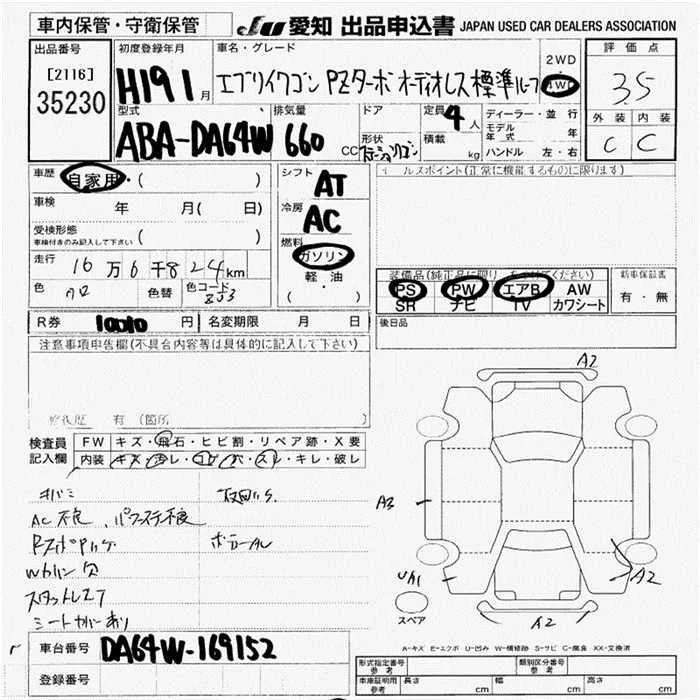 車内保管・守衛保管
JU 愛知 出品申込書 JAPAN USED CAR DEALERS ASSOCIATION
出品番号
[2116]
35230
初度登録年月
H19 1 月
車名・グレード
エブリイワゴン PZターボ オーディオレス 標準ルーフ
2WD
4WD
評価点
3.5
外装 内装
C C
型式
ABA-DA64W
排気量
660 CC
ドア
形状
定員 4 人
積載 kg
ディーラー・並行
モデル年式 年
ハンドル 左・右
車歴 自家用・( )
車検 年 月( 日)
受検形態
車検付きのみ記入して下さい ( )
走行 16万6千824km
色 色替 色コード Z J3
シフト AT
冷房 AC
燃料 ガソリン
軽・油
( )
セールスポイント(正常に機能するものに限ります)
PS PW エアB AW
SR ナビ TV カワシート
新車保証書
有・無
後日品
R券 10010 円 名変期限 月 日
注意事項申告欄(不具合内容等は具体的に記入して下さい)
修復歴 有 (箇所 )
検査員記入欄
FW キズ・飛石・ヒビ割・リペア跡・X要
内装 キズ・汚レ・コゲ・穴・スレ・キレ・破レ
キバミ
AC不良、パワステ不良
ホイールカバー欠
スタットレスT
シートカバーあり
A2
A3
UA1
A2
A2
スペア
A-キズ E-エクボ U-凹み W-補修跡 S-サビ C-腐食 XX-交換済
車台番号 DA64W-169152
登録番号
形式指定番号 参考
類別区分番号 参考
車庫証明用 参考 長さ cm 幅 cm 高さ cm